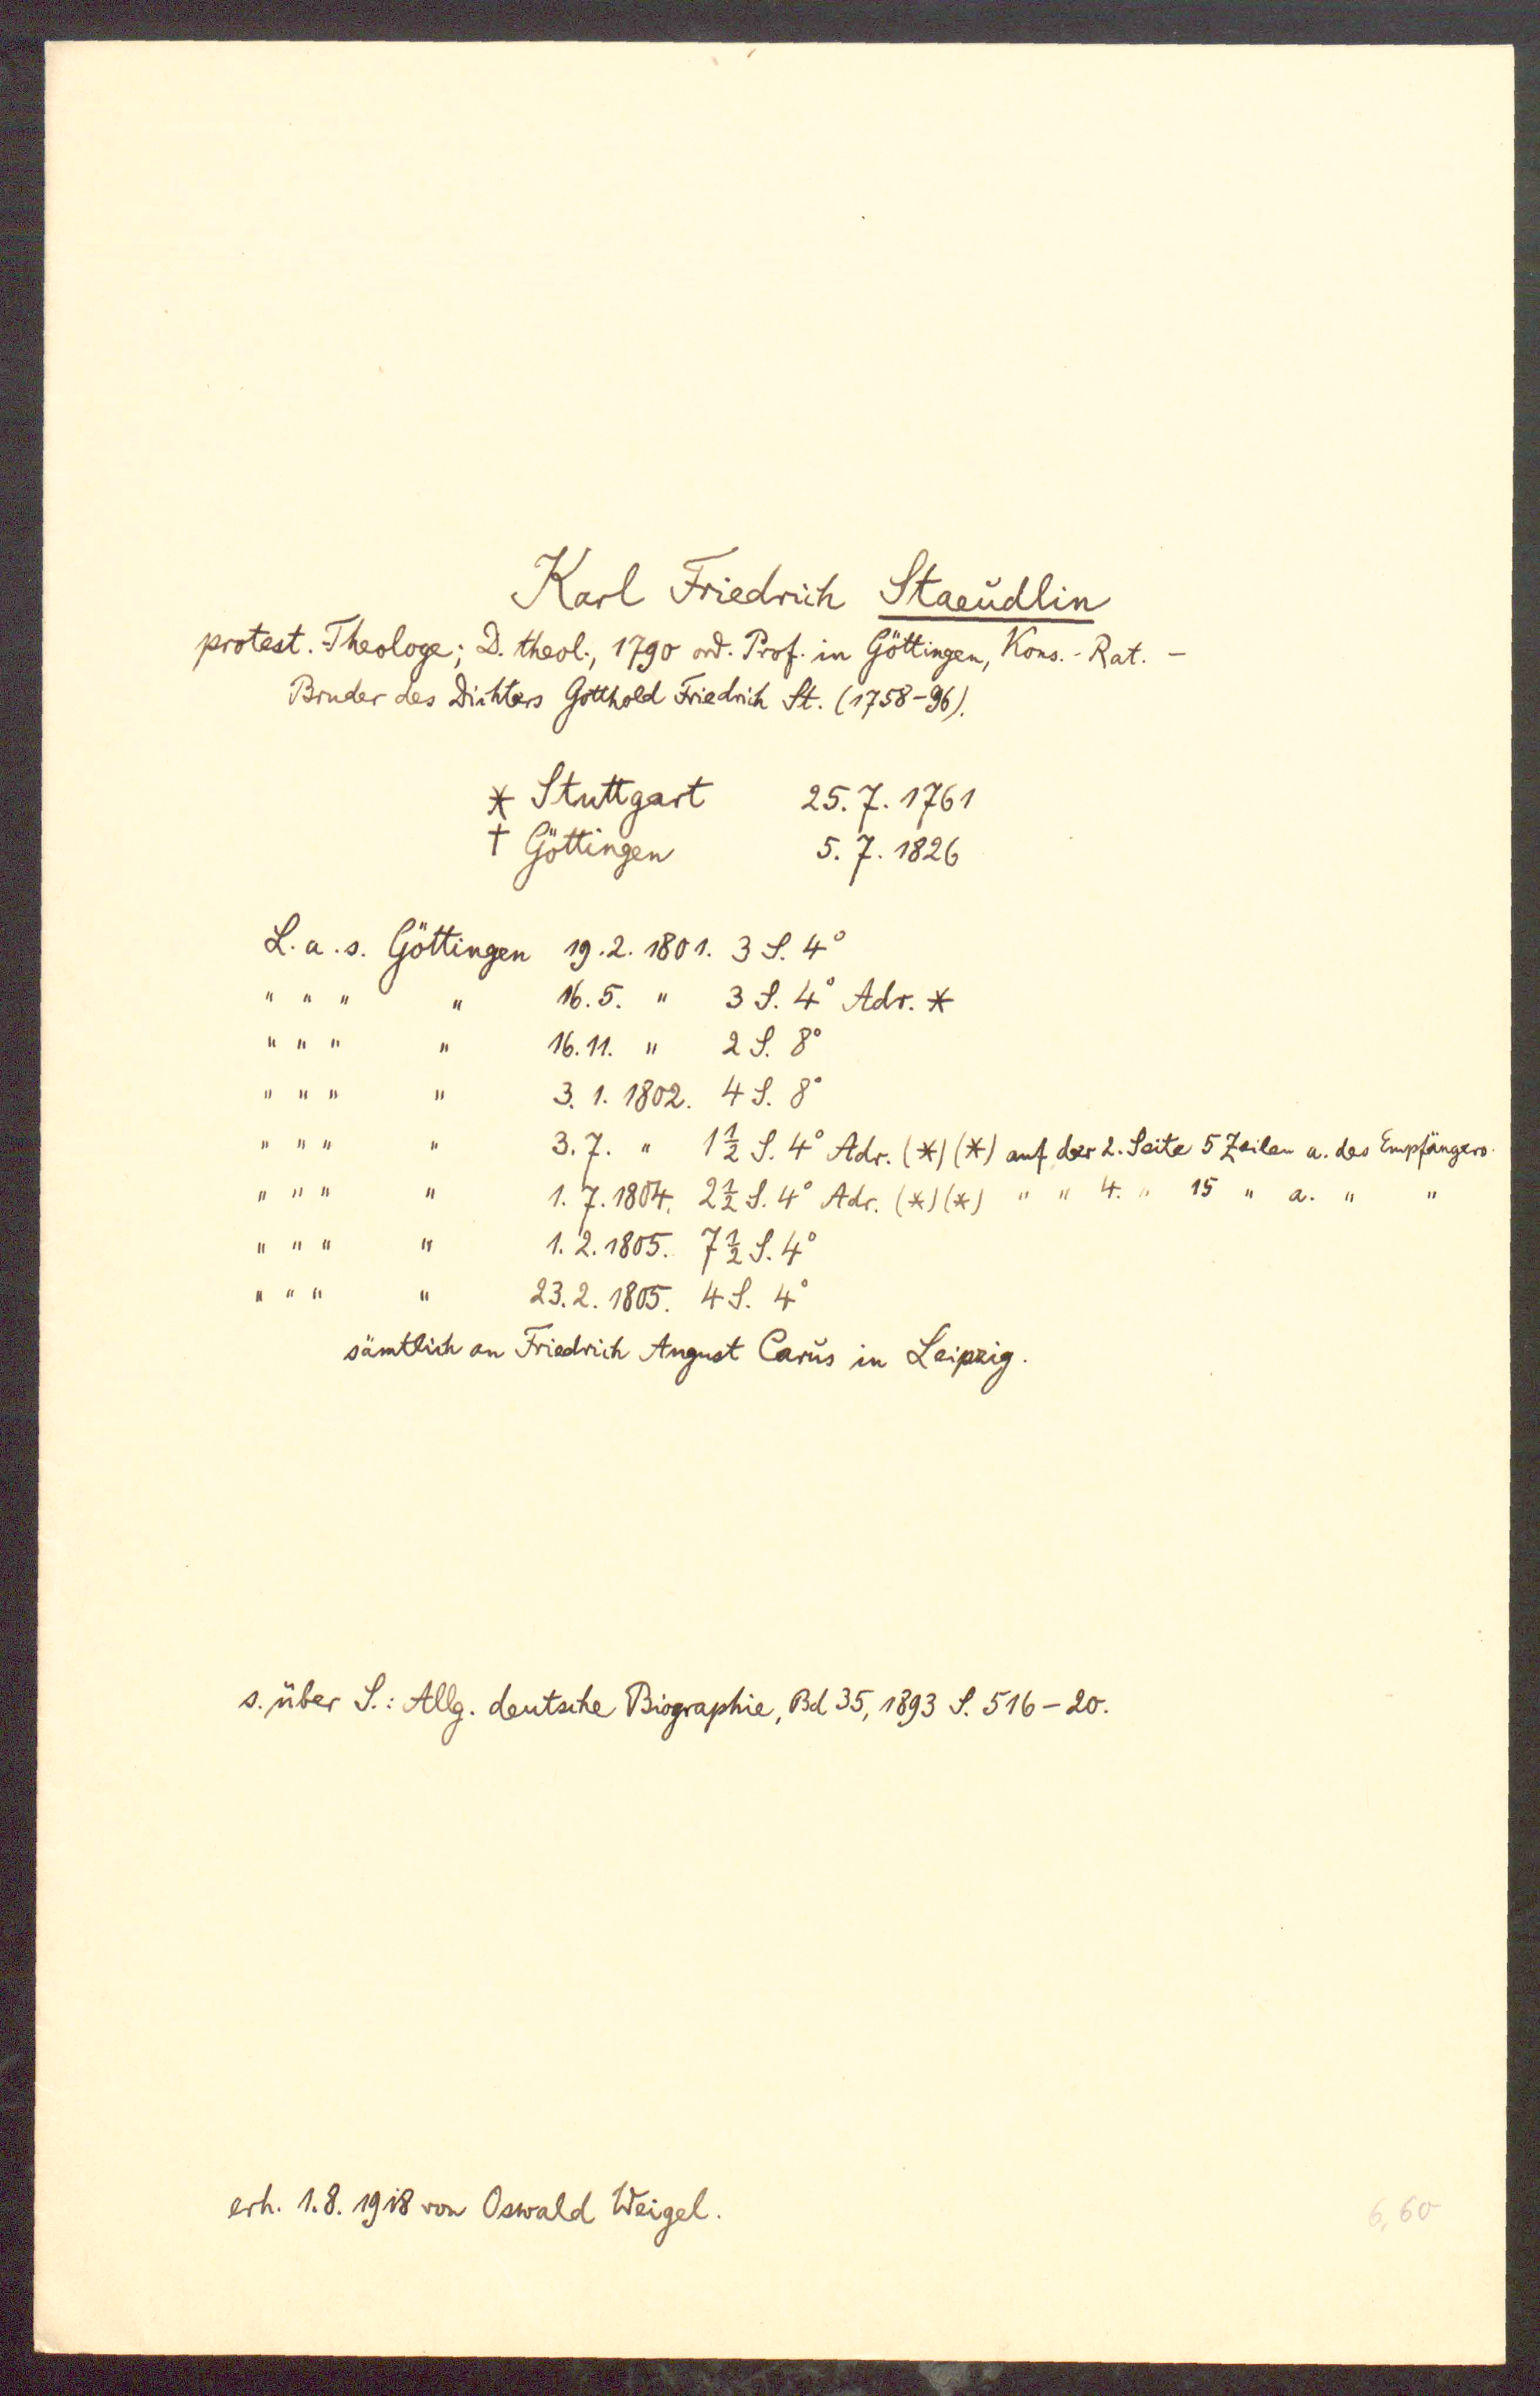 Karl Friedrich Staeudlin
protest. Theologe; D. theol., 1790 ord. Prof. in Göttingen, Kons.-Rat. –
Bruder des Dichters Gotthold Friedrich St. (1758–96).
* Stuttgart 25. 7. 1761
† Göttingen 5. 7. 1826
L. a. s. Göttingen 19. 2. 1801. 3 S. 4°
" " " " 16. 5. " 3 S. 4° Adr. *
" " " " 16. 11. " 2 S. 8°
" " " " 3. 1. 1802. 4 S. 8°
" " " " 3. 7. " 1 1/2 S. 4° Adr. (*) (*) auf der 2. Seite 5 Zeilen a. des Empfängers.
" " " " 1. 7. 1804. 2 1/2 S. 4° Adr. (*) (*) " " 4. " 15 " a. " "
" " " " 1. 2. 1805. 7 1/2 S. 4°
" " " " 23. 2. 1805. 4 S. 4°
sämtlich an Friedrich August Carus in Leipzig.
s. über S.: Allg. deutsche Biographie, Bd 35, 1893 S. 516–20.
erh. 1. 8. 1918 von Oswald Weigel.
6,60